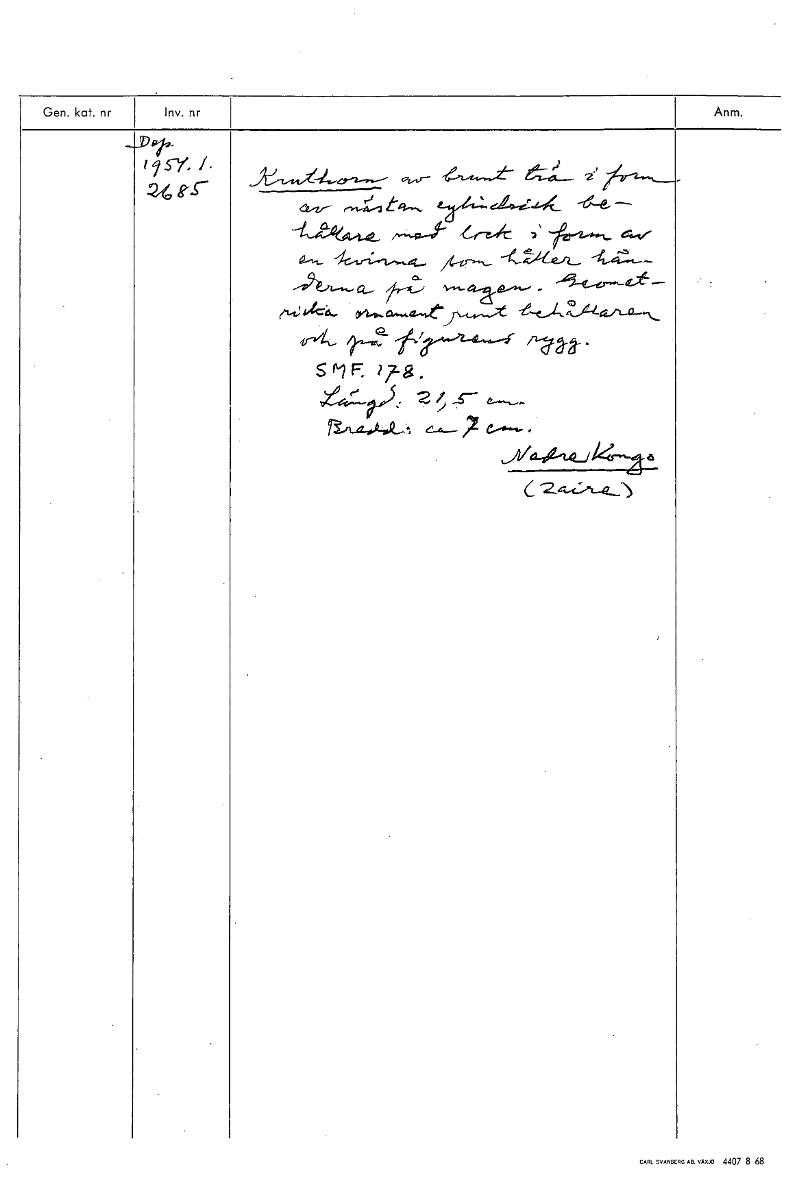 Gen. kat. nr Inv. nr Anm.
Dep.
1957.1.
2685
Kruthorn av brunt trä i form
av nästan cylindrisk be-
hållare med lock i form av
en kvinna som håller hän-
derna på magen. Geomet-
riska ornament runt behållaren
och på figurens rygg.
SMF. 178.
Längd: 21,5 cm.
Bredd: ca 7 cm.
Nedre Kongo
(Zaire)
CARL SVANBERG AB, VÄXJÖ 4407 8 68